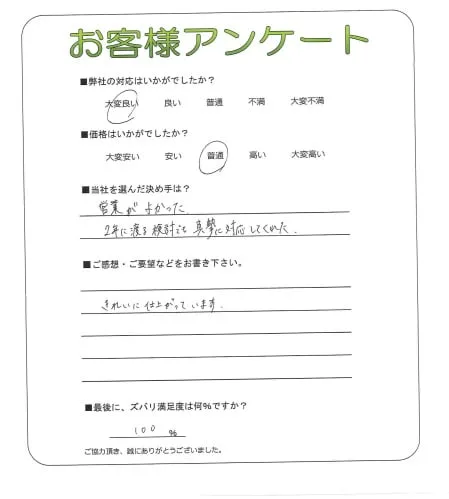 お客様アンケート
■弊社の対応はいかがでしたか?
大変良い 良い 普通 不満 大変不満
■価格はいかがでしたか?
大変安い 安い 普通 高い 大変高い
■当社を選んだ決め手は?
営業がよかった.
2年に渡る検討にも真摯に対応してくれた.
■ご感想・ご要望などをお書き下さい。
きれいに仕上がっています.
■最後に、ズバリ満足度は何%ですか?
100 %
ご協力頂き、誠にありがとうございました。